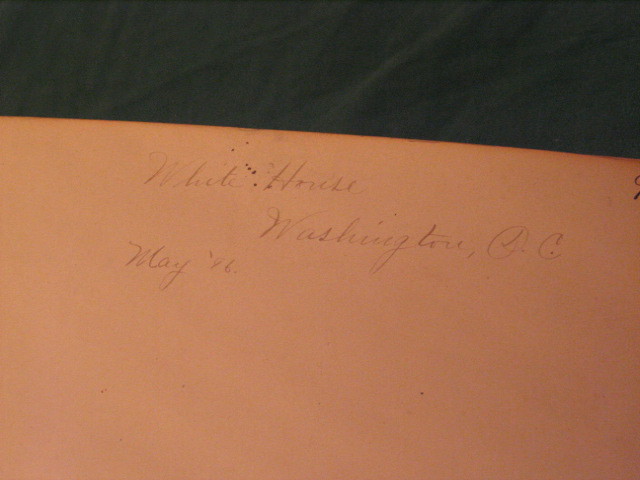 White House
Washington, D. C.
May '96.